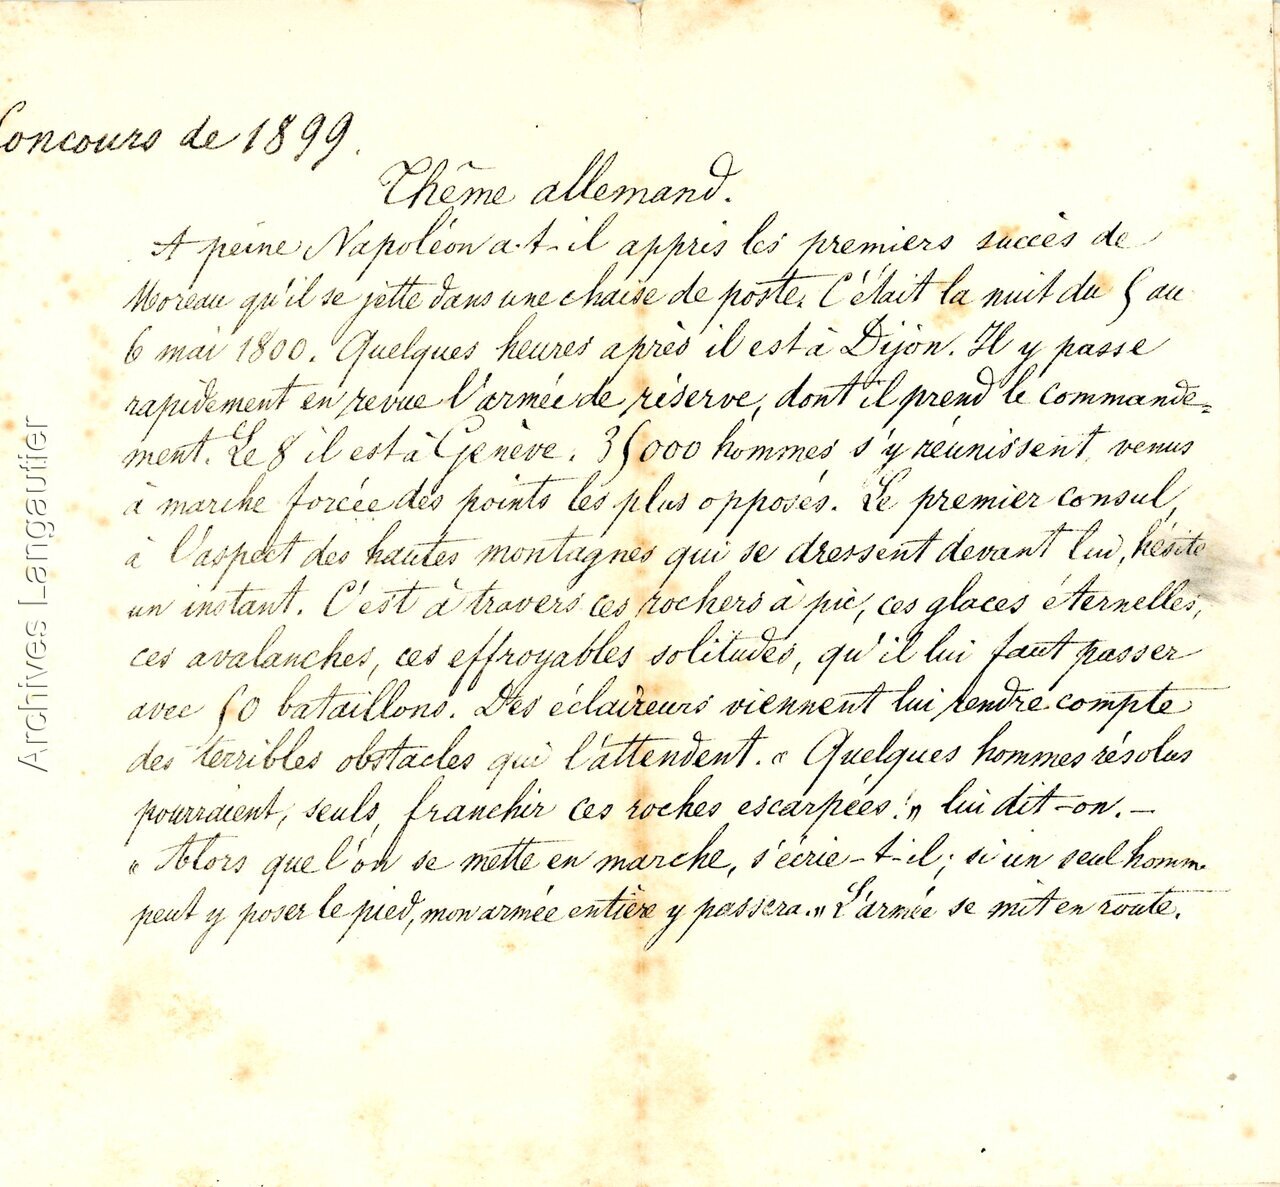 Concours de 1899.
Thême allemand.
A peine Napoléon a-t-il appris les premiers succès de
Moreau qu'il se jette dans une chaise de poste. C'était la nuit du 5 au
6 mai 1800. Quelques heures après il est à Dijon. Il y passe
rapidement en revue l'armée de réserve, dont il prend le commande=
ment. Le 8 il est à Genève. 35000 hommes s'y réunissent, venus
à marche forcée des points les plus opposés. Le premier consul,
à l'aspect des hautes montagnes qui se dressent devant lui, hésite
un instant. C'est à travers ces rochers à pic, ces glaces éternelles,
ces avalanches, ces effroyables solitudes, qu'il lui faut passer
avec 50 bataillons. Des éclaireurs viennent lui rendre compte
des terribles obstacles qui l'attendent. « Quelques hommes résolus
pourraient, seuls, franchir ces roches escarpées! » lui dit-on. —
« Alors que l'on se mette en marche, s'écrie-t-il; si un seul homme
peut y poser le pied, mon armée entière y passera. » L'armée se mit en route.
Archives Langautier